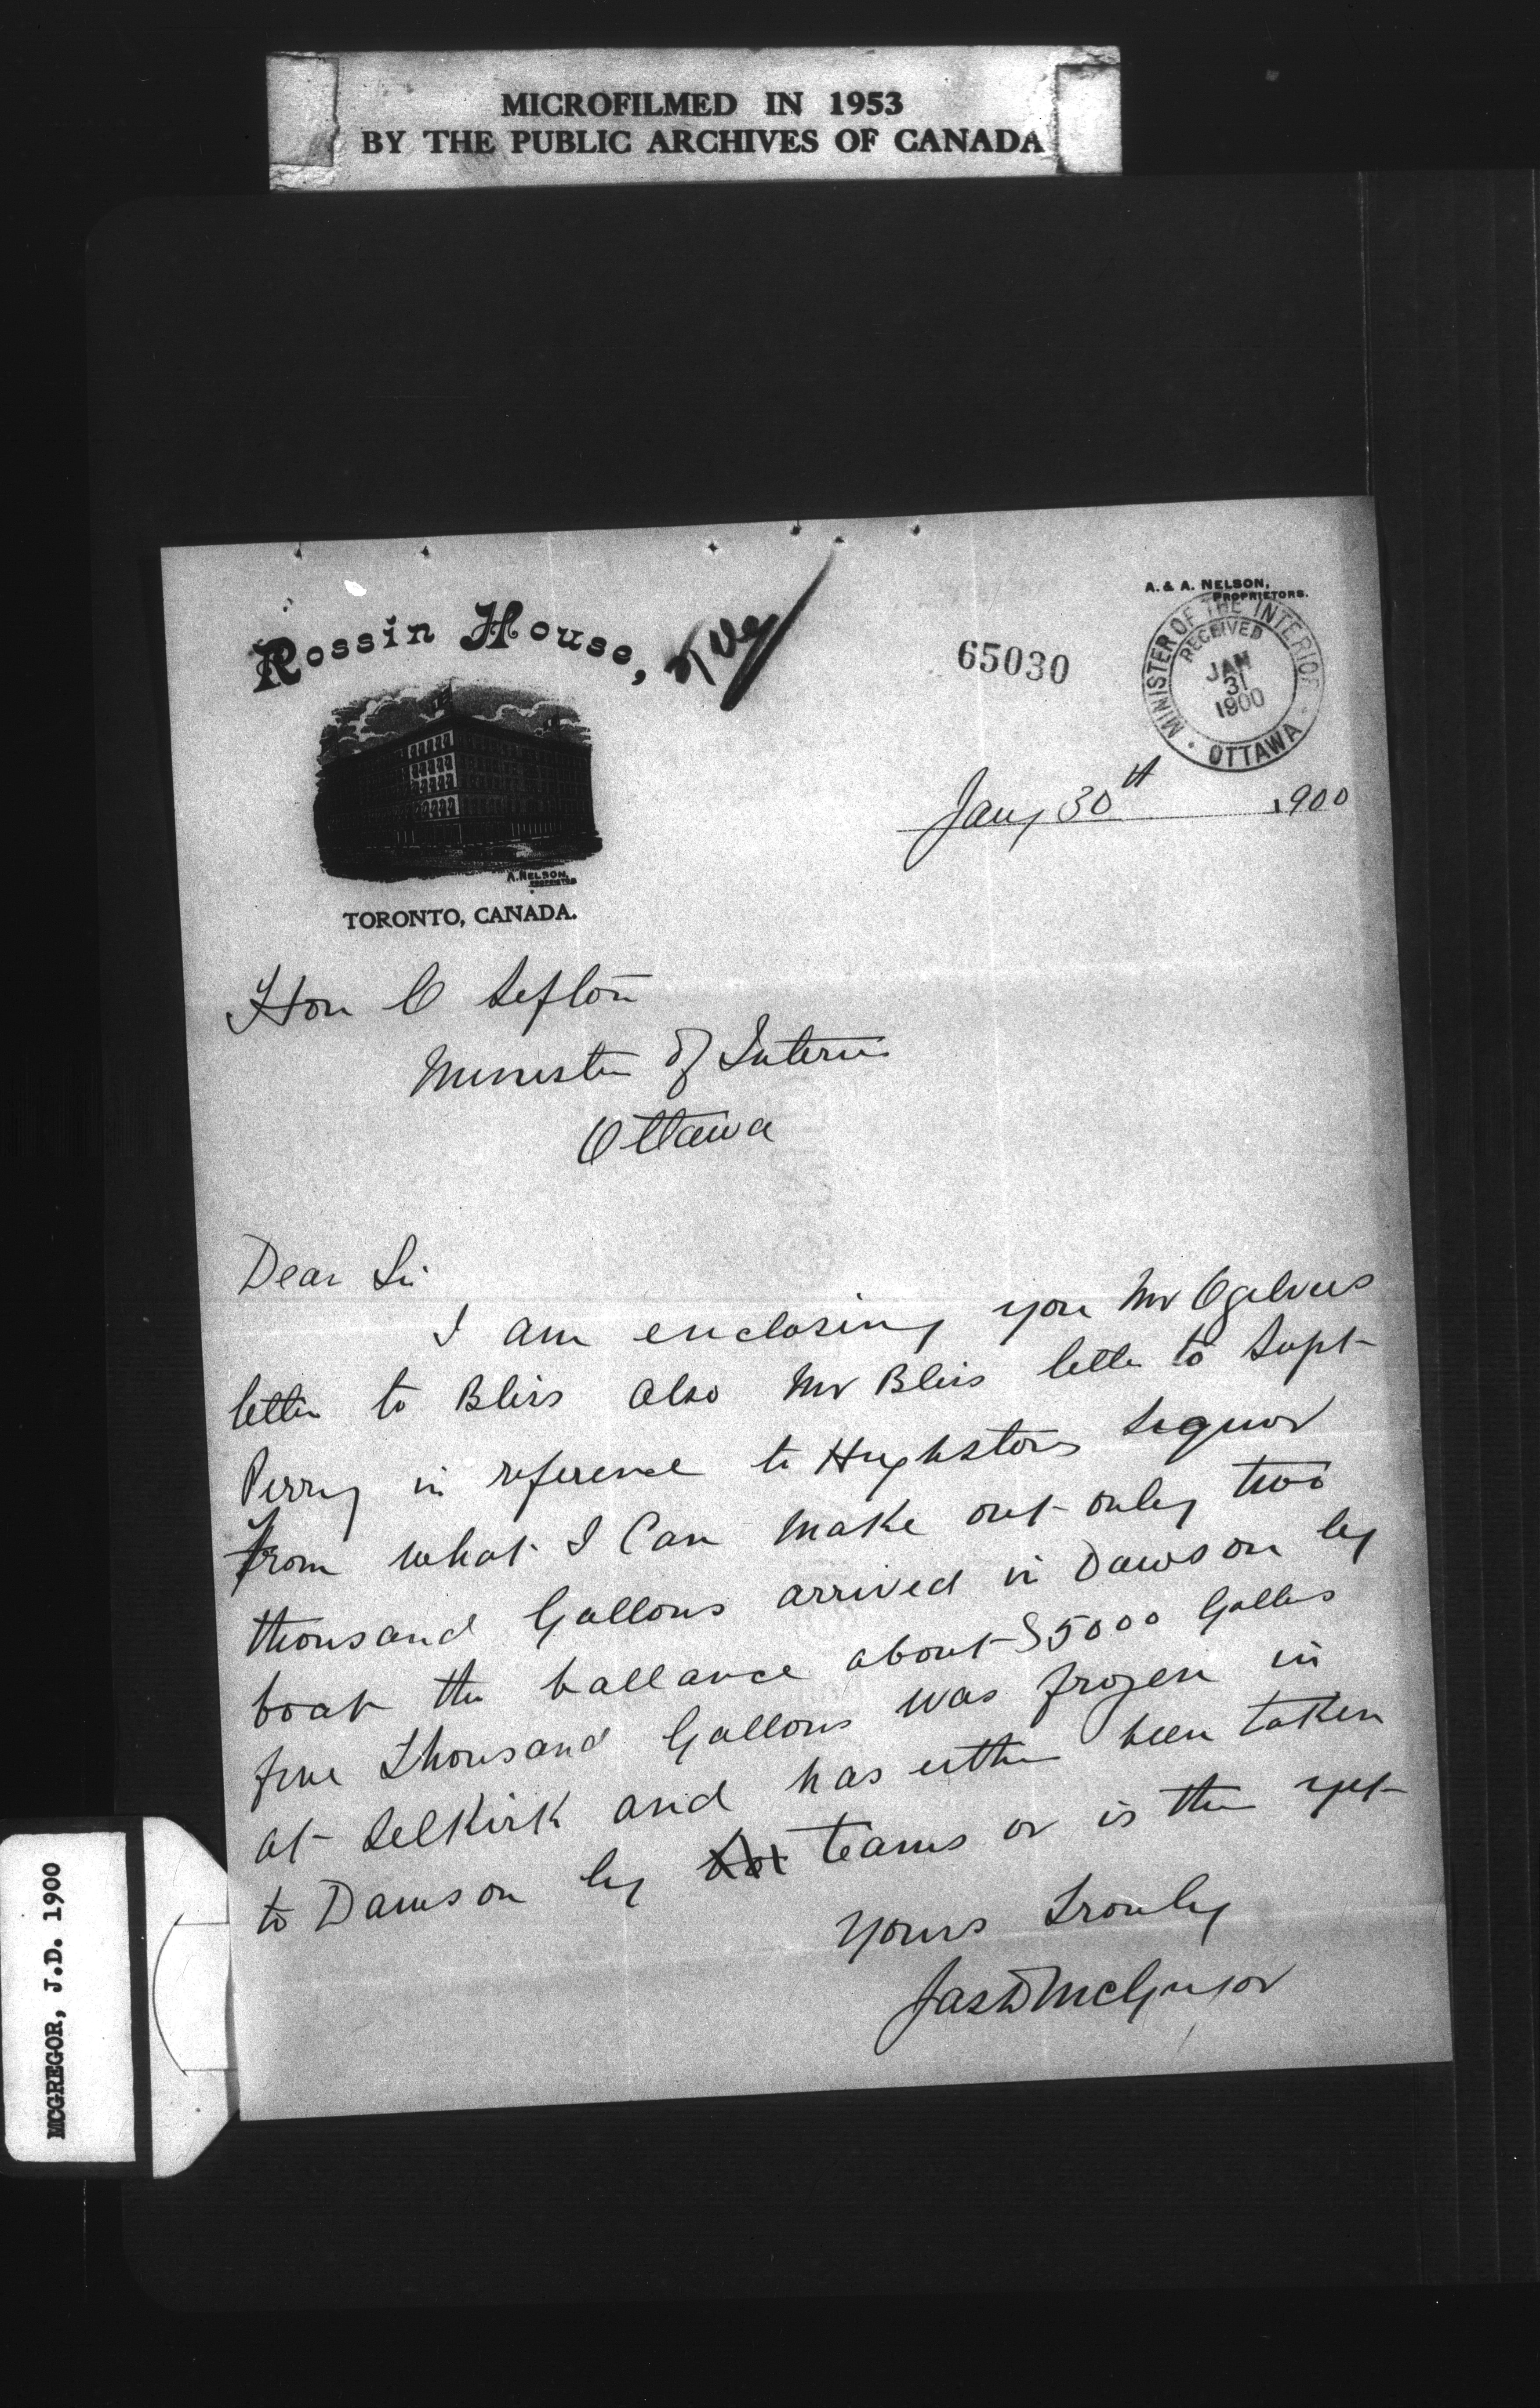 MICROFILMED IN 1953
BY THE PUBLIC ARCHIVES OF CANADA
Rossin House,
A. & A. NELSON,
PROPRIETORS.
65030
MINISTER OF THE INTERIOR
RECEIVED
JAN
31
1900
OTTAWA
Jany 30th 1900
A. NELSON,
PROPRIETOR
TORONTO, CANADA.
Hon C Sefton
Minister of Interior
Ottawa
Dear Sir
I am enclosing you Mr Ogilvies
letter to Bliss also Mr Bliss letter to Supt
Perry in reference to Hughstons Liquor
From what I Can make out only two
thousand Gallons arrived in Dawson by
boat the ballance about 5000 Gallons
five thousand Gallons was frozen in
at Selkirk and has either been taken
to Dawson by teams or is there yet
Yours Trouly
Jas D McGregor
MCGREGOR, J.D. 1900